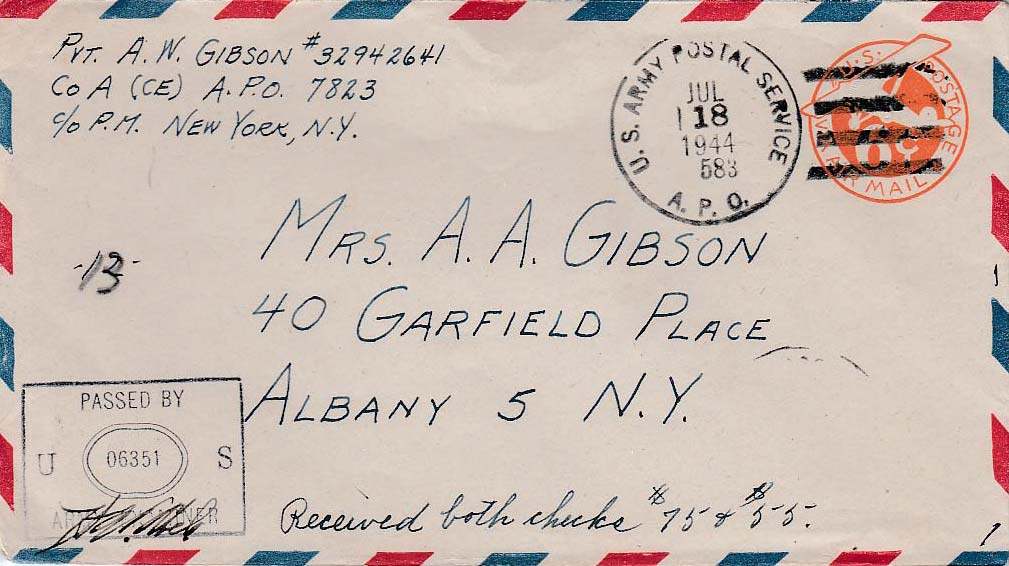 Pvt. A. W. GIBSON #32942641
Co A (CE) A.P.O. 7823
c/o P.M. NEW YORK, N.Y.
U.S. ARMY POSTAL SERVICE
JUL
18
1944
583
A.P.O.
U.S. POSTAGE
6¢
AIR MAIL
-13-
MRS. A. A. GIBSON
40 GARFIELD PLACE
ALBANY 5 N.Y.
PASSED BY
U 06351 S
ARMY EXAMINER
Received both checks $75 & $55.